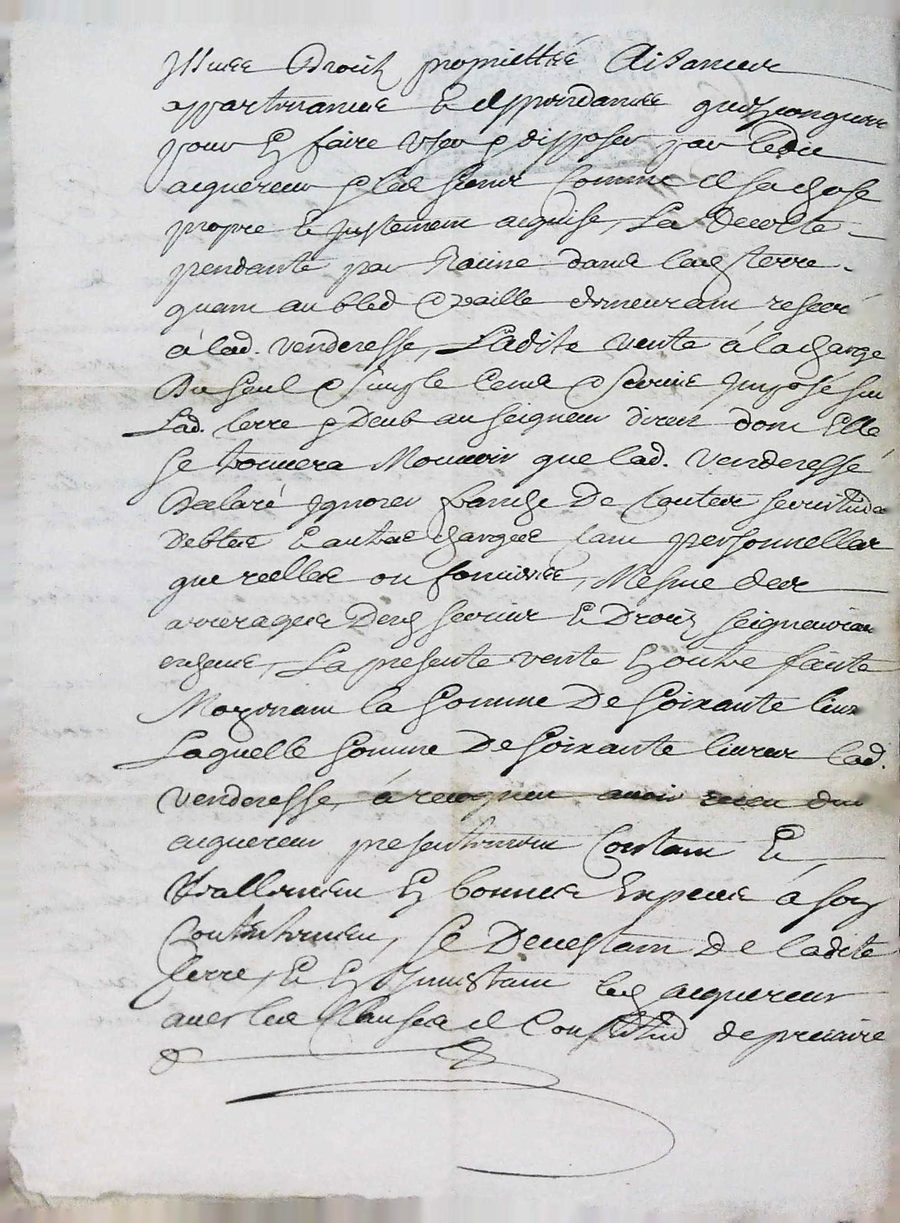 issues droitz proprietteé aisances
appartenances et deppendances quelzconques
pour en faire user et disposer par ledit
acquereur et les siens comme de sa chose
propre et justement acquise, La recolte
pendante par racine dans lade terre
quant au bled et paille demeurant reservé
à lad. venderesse, Ladite vente à la charge
du seul et simple cens et servis imposé sur
Lad. terre et deub au seigneur direct dont elle
se trouvera mouvoir que lad. venderesse
declaré ignorer franche de toutes servitudes
debtes et autres charges tant personnelles
que reelles ou foncieres, Mesme des
arrerages desd servis et droitz seigneuriaux
La presente vente en outre faitte
Moyenant la somme de soixante livres
Laquelle somme de soixante livres lad.
venderesse, à recogneu avoir receu dud
acquereur presentement contant et
reallement en bonnes especes à son
contentement, se devestant de ladite
terre, et en investant led acquereur
avec les clauses de constitud de precaire